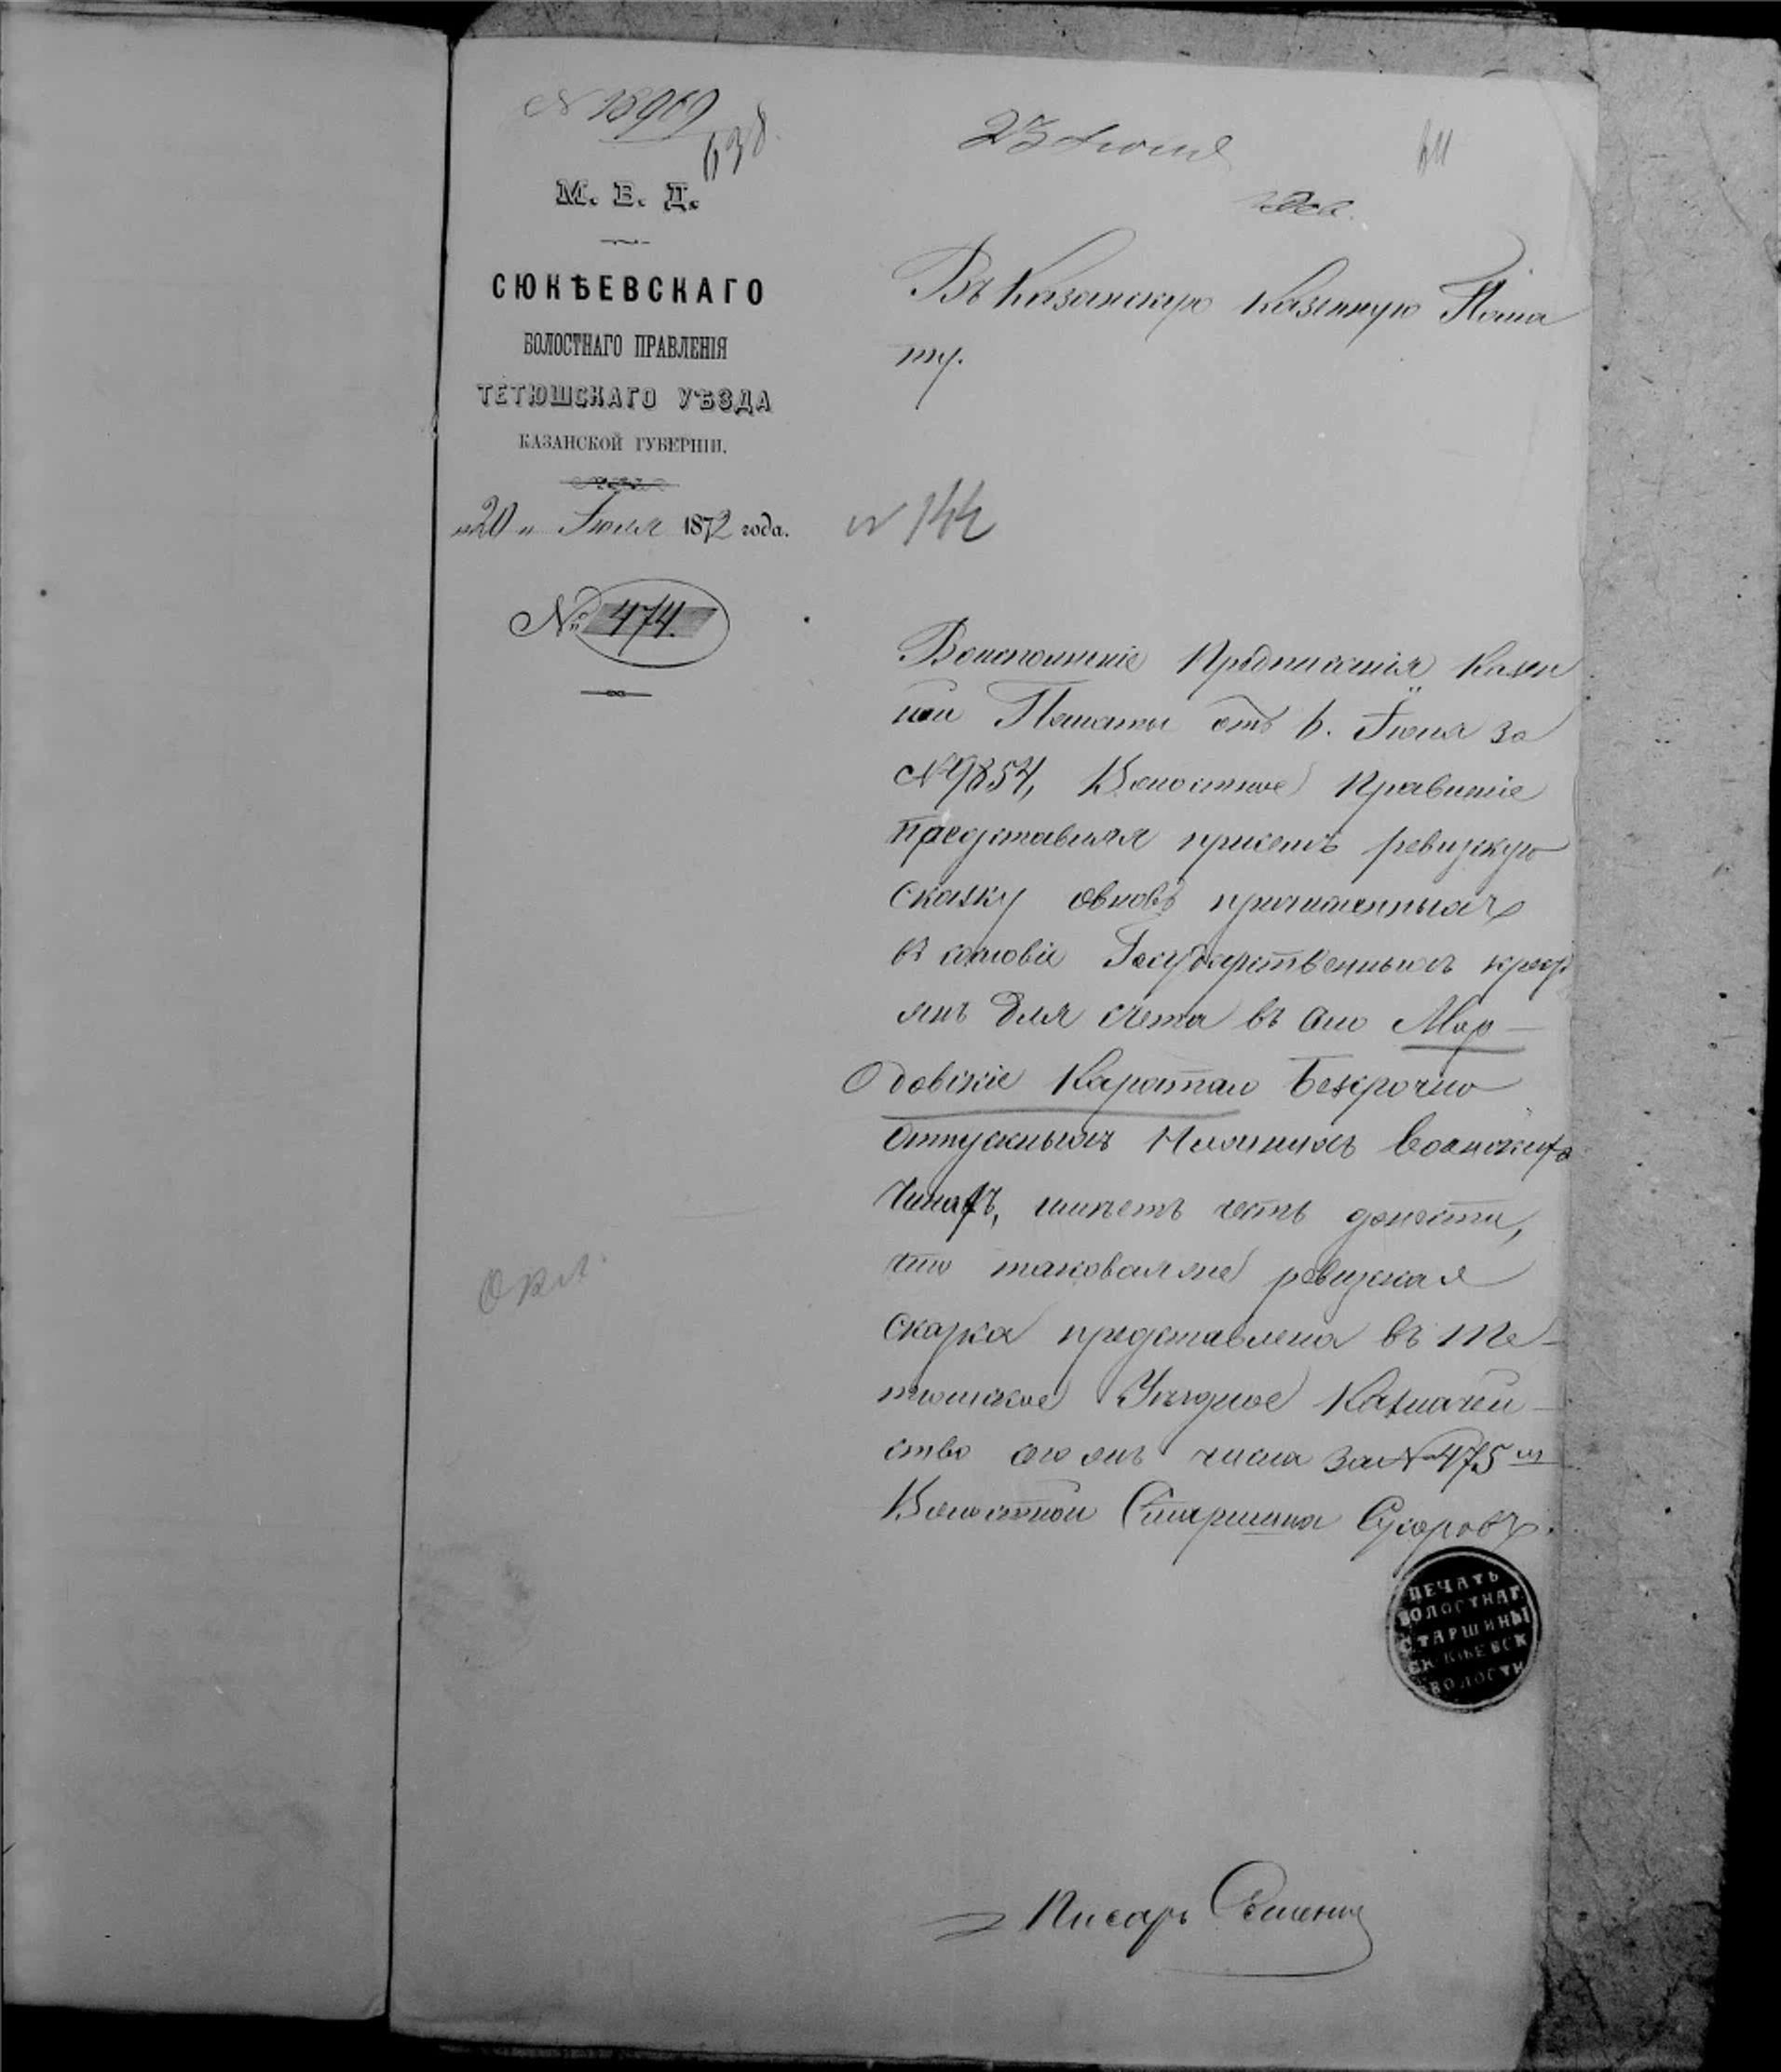 N 15969
638
М. В. Д.
СЮКѢЕВСКАГО
ВОЛОСТНАГО ПРАВЛЕНІЯ
ТЕТЮШСКАГО УѢЗДА
КАЗАНСКОЙ ГУБЕРНІИ.
„20„ Іюля 1872 года.
№ 474.
23 Іюля
Въ Казанскую Казенную Пала
ту.
N 144
Воисполненіе Предписанія Казен
ной Палаты отъ 6. Іюля за
N 9854, Волостное Правленіе
представляя присемъ ревизкую
сказку овновь причисленныхъ
в сословіе Государственныхъ крест
янъ для счета въ село Мор-
довскіе Каратаи Безсрочно
отпускныхъ Нижнихъ воинскихъ
чинахъ, имѣетъ честь донести,
что таковаяже ревизкая
сказка представлена въ Те-
тюшское Уѣздное Казначей-
ство сего онъ числа за N 475 м
Волостной Старшина Сухоровъ.
ПЕЧАТЬ
ВОЛОСТНАГ
СТАРШИНЫ
СЮКѢЕВСК
ВОЛОСТИ
Окл.
Писарь Семенъ